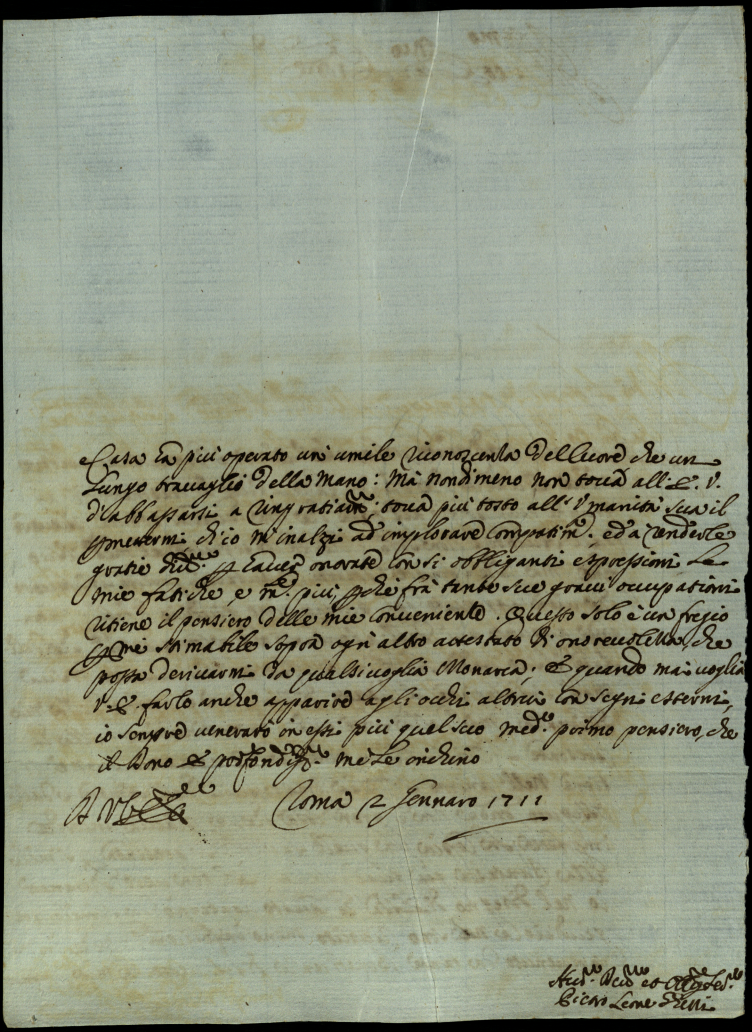 Sarà più operato un'umile riconoscenza del cuore che un
lungo travaglio della mano: Ma nondimeno non tocca all' E. V.
d'abbassarsi a ringratiarm; tocca più tosto all' Vmanità sua il
ch'io m'inalzi ad implorare compatim.to ed a renderle
gratie onorate con sì obbliganti espressioni le
mie fatiche, e più, pche frà tante sue gravi occupationi
ritiene il pensiero delle mie convenienze. Questo solo è un fregio
p me stimabile sopra ogn' altro attestato di onorevolezza, che
possa derivarmi da qualsivoglia Monarca; et quando mai voglia
V. E. farlo anche apparire agli occhi altrui con segni esterni,
io sempre venererò in essi più quel suo med.o primo pensiero, che
il dono et profondiss.te me le inchino
D V E Roma 2 Gennaro 1711
et
Leone